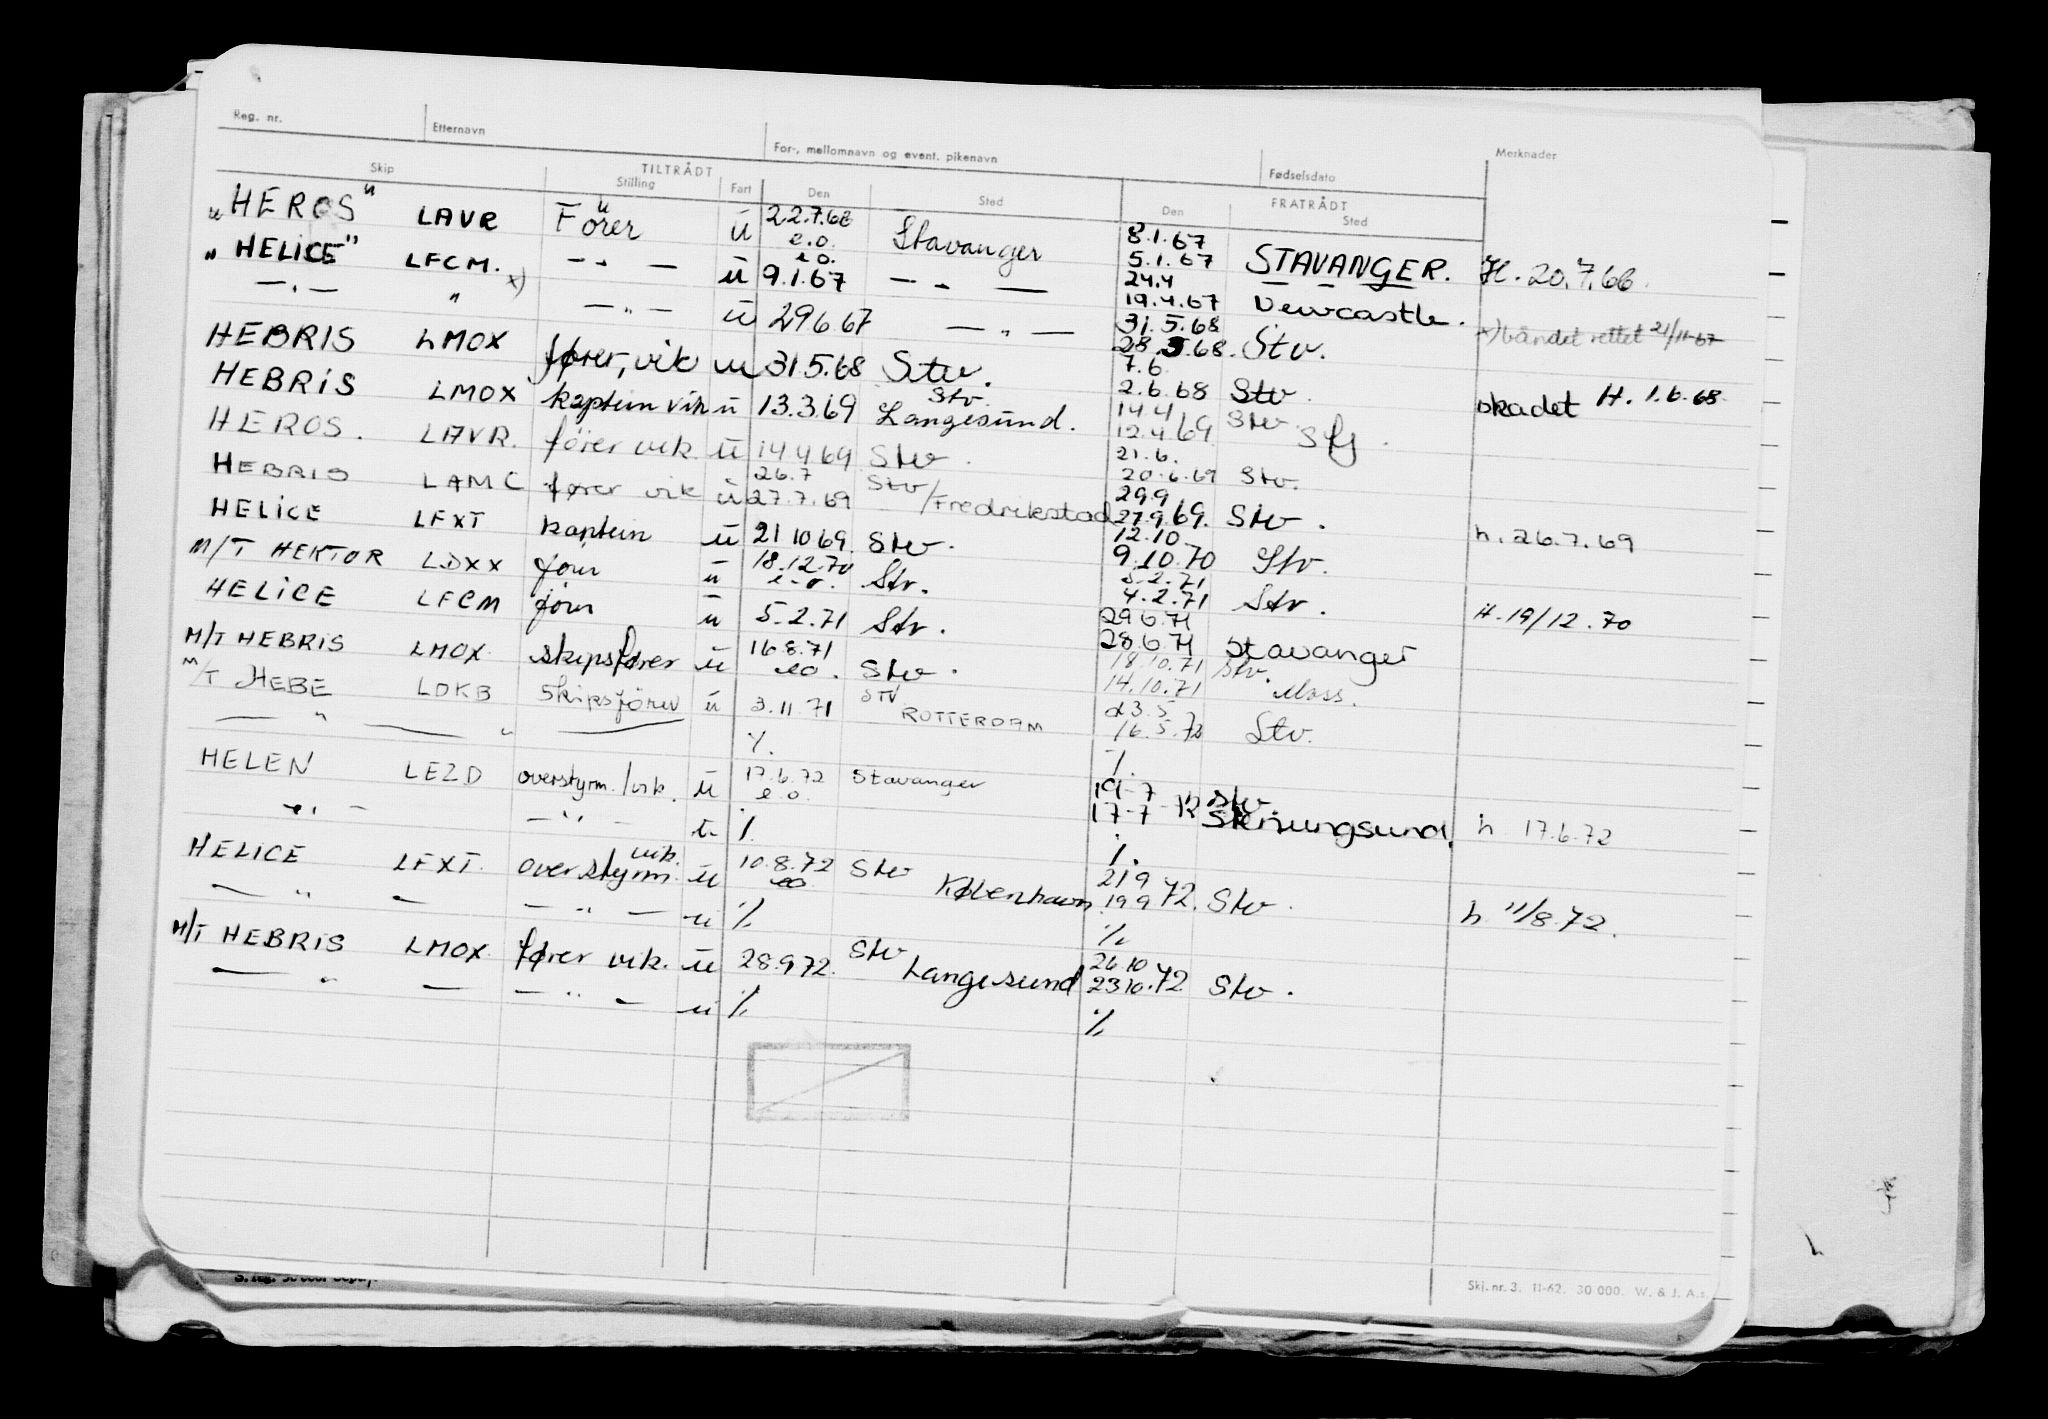 Reg. nr. Etternavn For-, mellomnavn og event. pikenavn Fødselsdato Merknader
Skip TILTRÅDT FRATRÅDT
Stilling Fart Den Sted Den Sted
"HEROS" LAVR Förer ü 22.7.66 e.o. Stavanger 8.1.67 5.1.67 STAVANGER. H. 20.7.66.
"HELICE" LFCM. x) — " — ü e.o. 9.1.67 — " — 24.4 19.4.67 Newcastle.
— " — " — " — ü 29.6.67 — " — 31.5.68 28.5.68. Stv. x) båndet rettet 21/11-67
HEBRIS LMOX fører, vik u 31 5.68 Stv. 7.6 2.6.68 Stv. skadet H. 1.6.68.
HEBRIS LMOX kaptein vik ü 13.3.69 Stv. Langesund. 14.4 12.4.69 Stv.
HEROS. LAVR. förer vik ü 14 4 69 Stv. 21.6. 20.6.69 Stv.
HEBRIS LAMC fører vik ü 26.7 27.7.69 Stv/Fredrikstad 29.9 27.9.69. Stv. h. 26.7.69
HELICE LFXT kaptein ü 21 10 69. Stv. 12.10. 9.10.70 Stv.
M/T HEKTOR LDXX fører ü 18.12.70 e.o. Stv. 5.2.71 4.2.71 Stv. H. 19/12.70
HELICE LFCM fører ü 5.2.71 Stv. 29 6.71 28.6.71 Stavanger
M/T HEBRIS LMOX skipsfører ü 16.8.71 eo. Stv. 18.10.71 14.10.71 Stv. Moss.
M/T HEBE LDKB Skipsförer ü 3.11.71 STV ROTTERDAM 23.5 16.5.72 Stv.
— " — " — ./. ./.
HELEN LEZD overstyrm./vik. ü 17.6.72 e.o. Stavanger 19-7 17-7-72 Stv. Stenungsund. h 17.6.72
— " — — " — ./. ./.
HELICE LFXT. overstyrm. vik. ü 10.8.72 eo Stv København 21 9 19 9 72. Stv. h. 11/8.72.
— " — — " — u ./. ./.
M/T HEBRIS LMOX fører vik. ü 28.9 72. Stv Langesund 26 10 23 10.72 Stv.
— " — — " — u ./. ./.
Skj. nr. 3. 11-62. 30 000. W. & J. A.s.